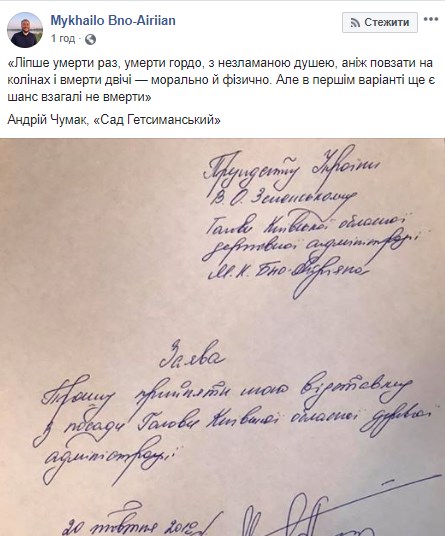 Mykhailo Bno-Airiian
Стежити
1 год ·
«Ліпше умерти раз, умерти гордо, з незламаною душею, аніж повзати на
колінах і вмерти двічі — морально й фізично. Але в першім варіанті ще є
шанс взагалі не вмерти»
Андрій Чумак, «Сад Гетсиманський»
Президенту України
В.О. Зеленському
Голови Київської обласної
державної адміністрації
М.К. Бно-Айріяна
Заява
Прошу прийняти мою відставку
з посади Голови Київської обласної державної
адміністрації
20 жовтня 2019